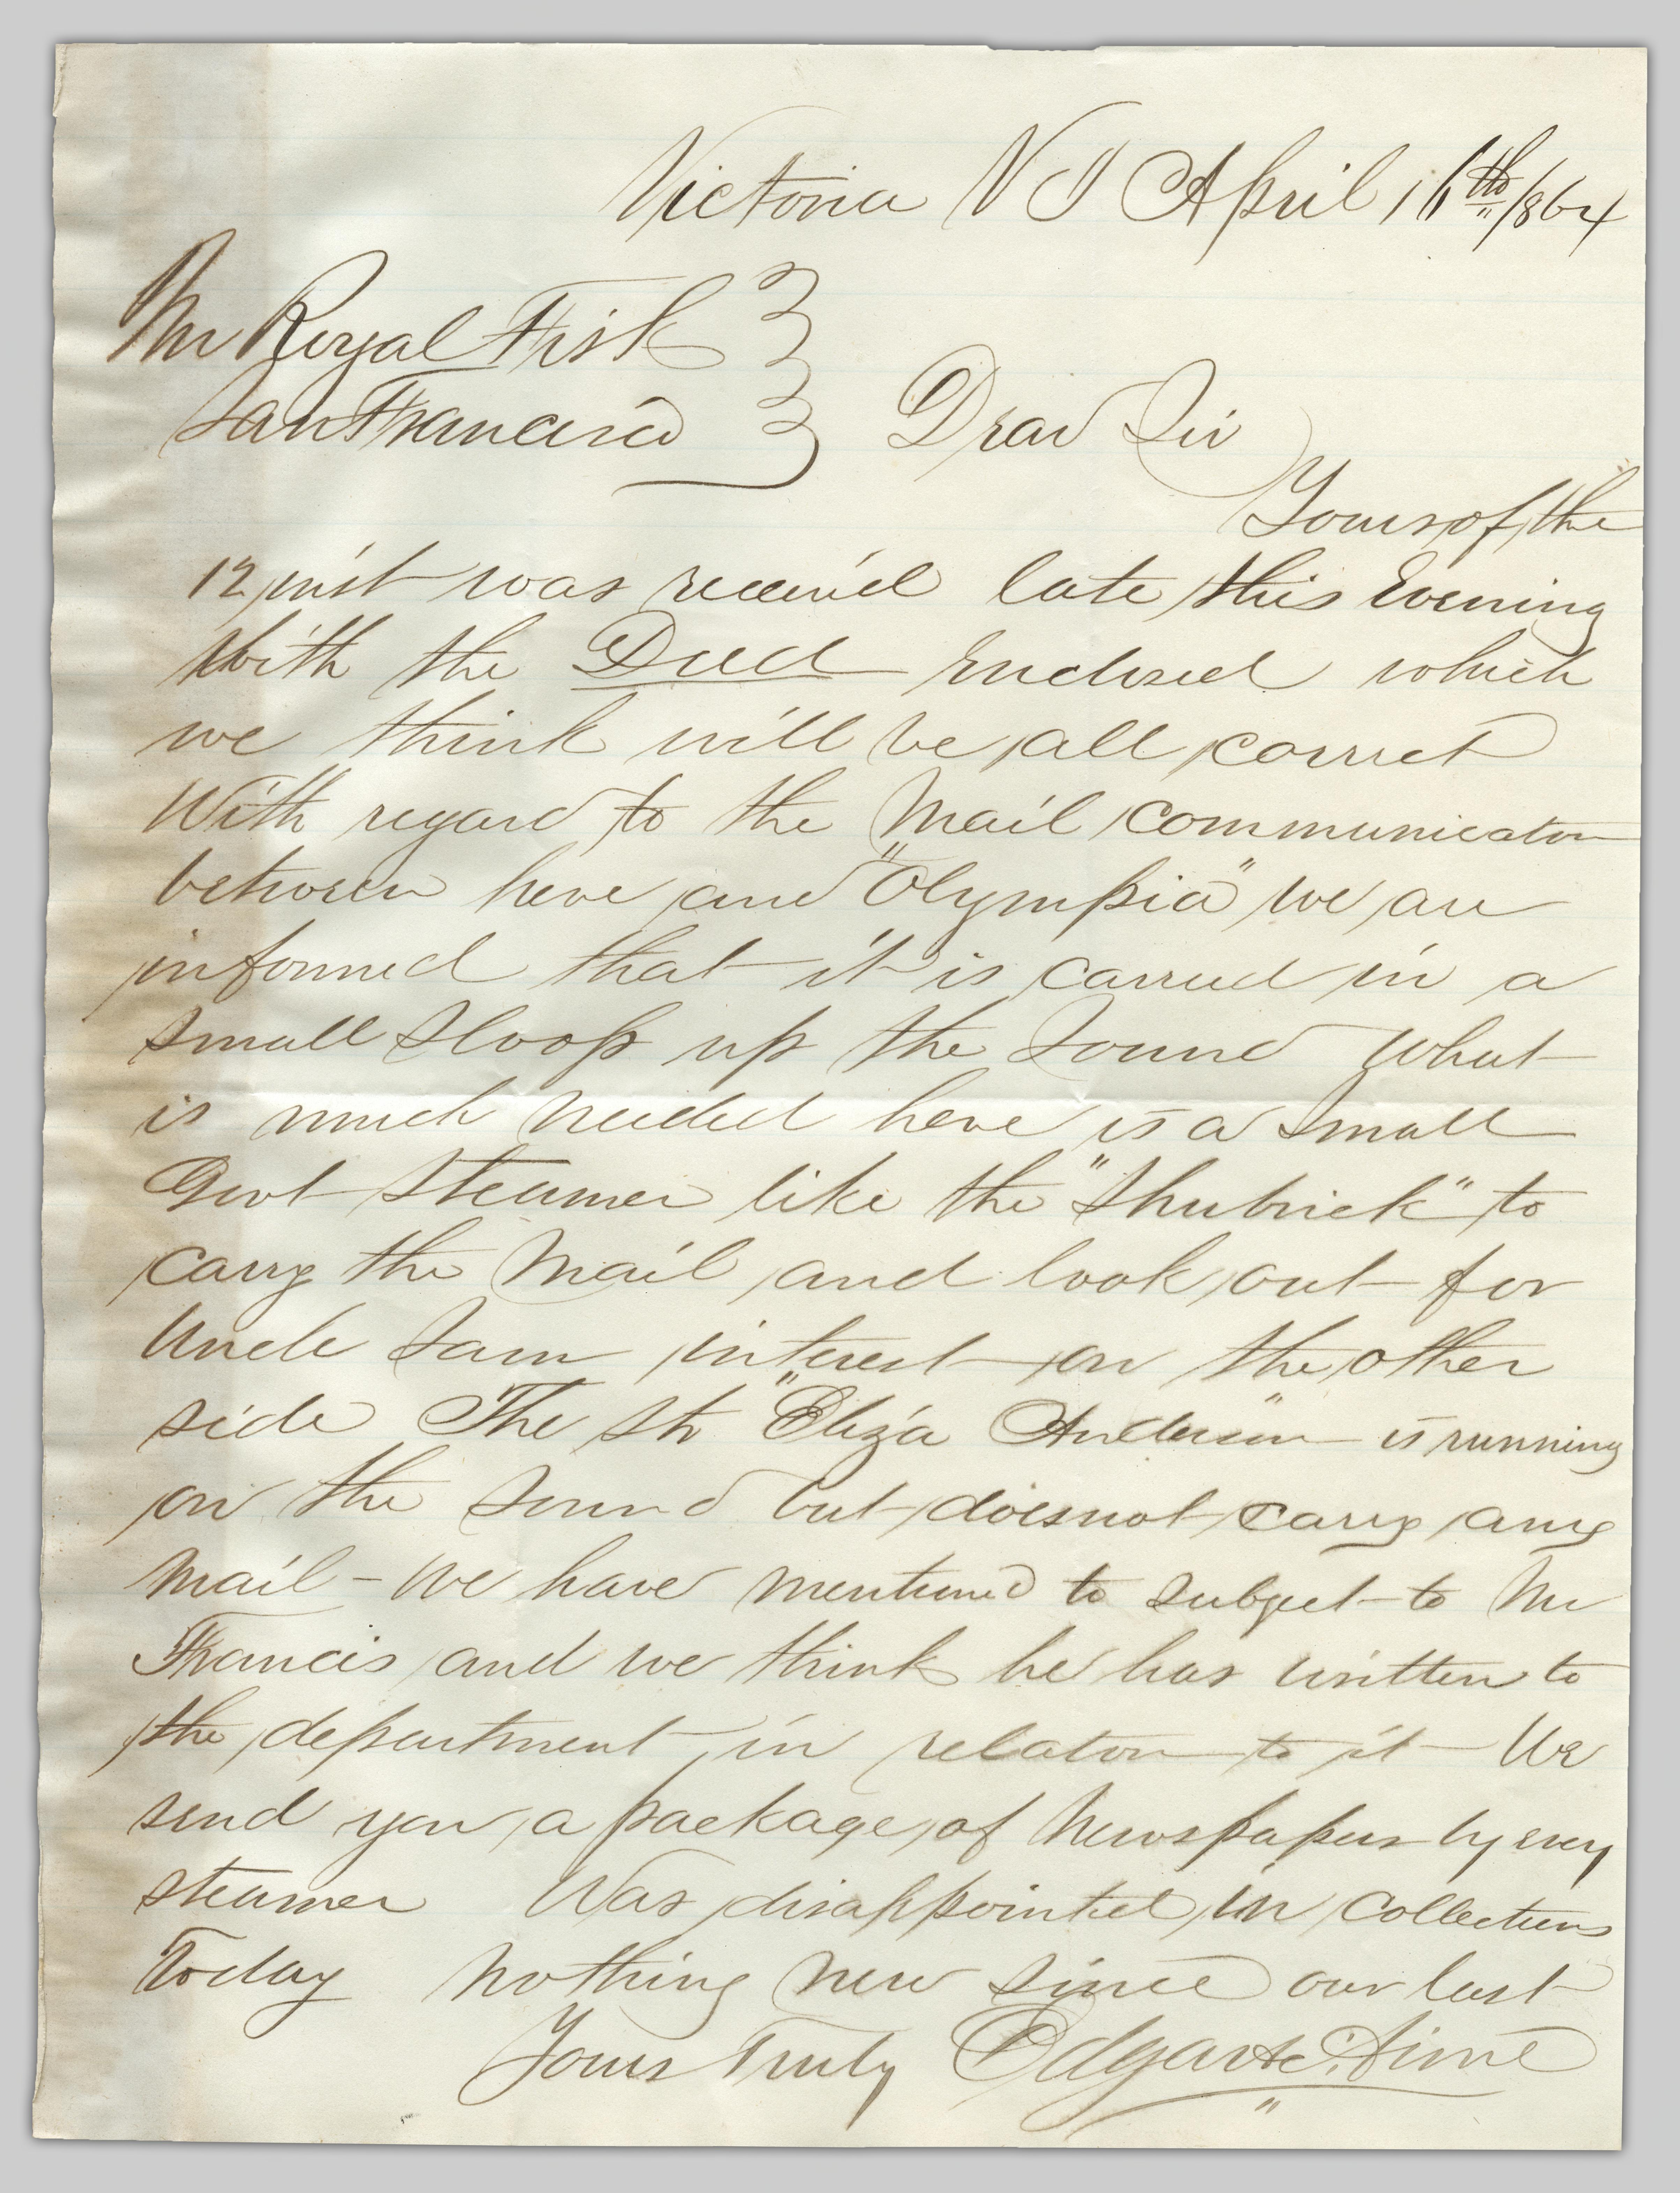 Victoria V I April 16th/864
Mr Royal Fisk
San Francisco Dear Sir
Yours of the
12 inst was receiv'd late this Evening
With the Deed Enclosed which
we think will be all correct
With regard to the Mail communication
between here and "Olympia" we are
informed that it is carried in a
small Sloop up the Sound What
is much needed here is a Small
Govt Steamer like the "Shubrick" to
carry the Mail and look out for
Uncle Sam interest on the other
side The Str "Eliza Anderson" is running
on the Sound but does not carry any
Mail - We have mentioned to subject to Mr
Francis and we think he has written to
the department in relation to it - We
send you a package of Newspapers by every
steamer Was disappointed in Collections
Today Nothing New Since our last
Yours Truly Edgar &